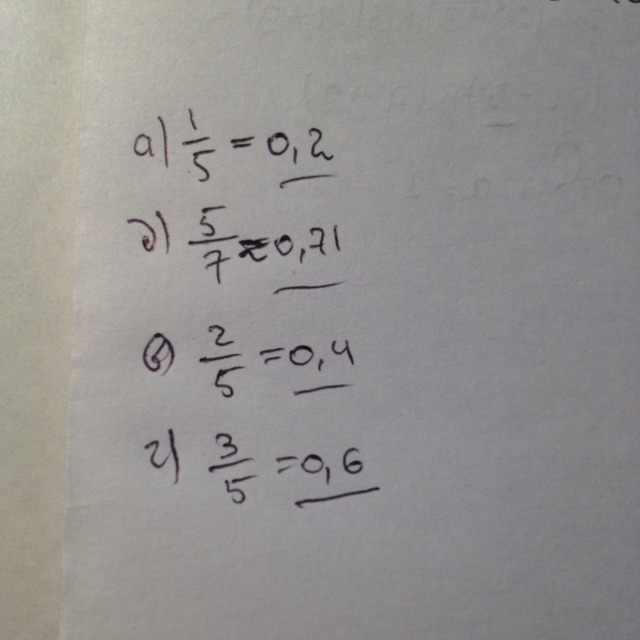 а) 1/5 = 0,2
б) 5/7 ≈ 0,71
в) 2/5 = 0,4
г) 3/5 = 0,6